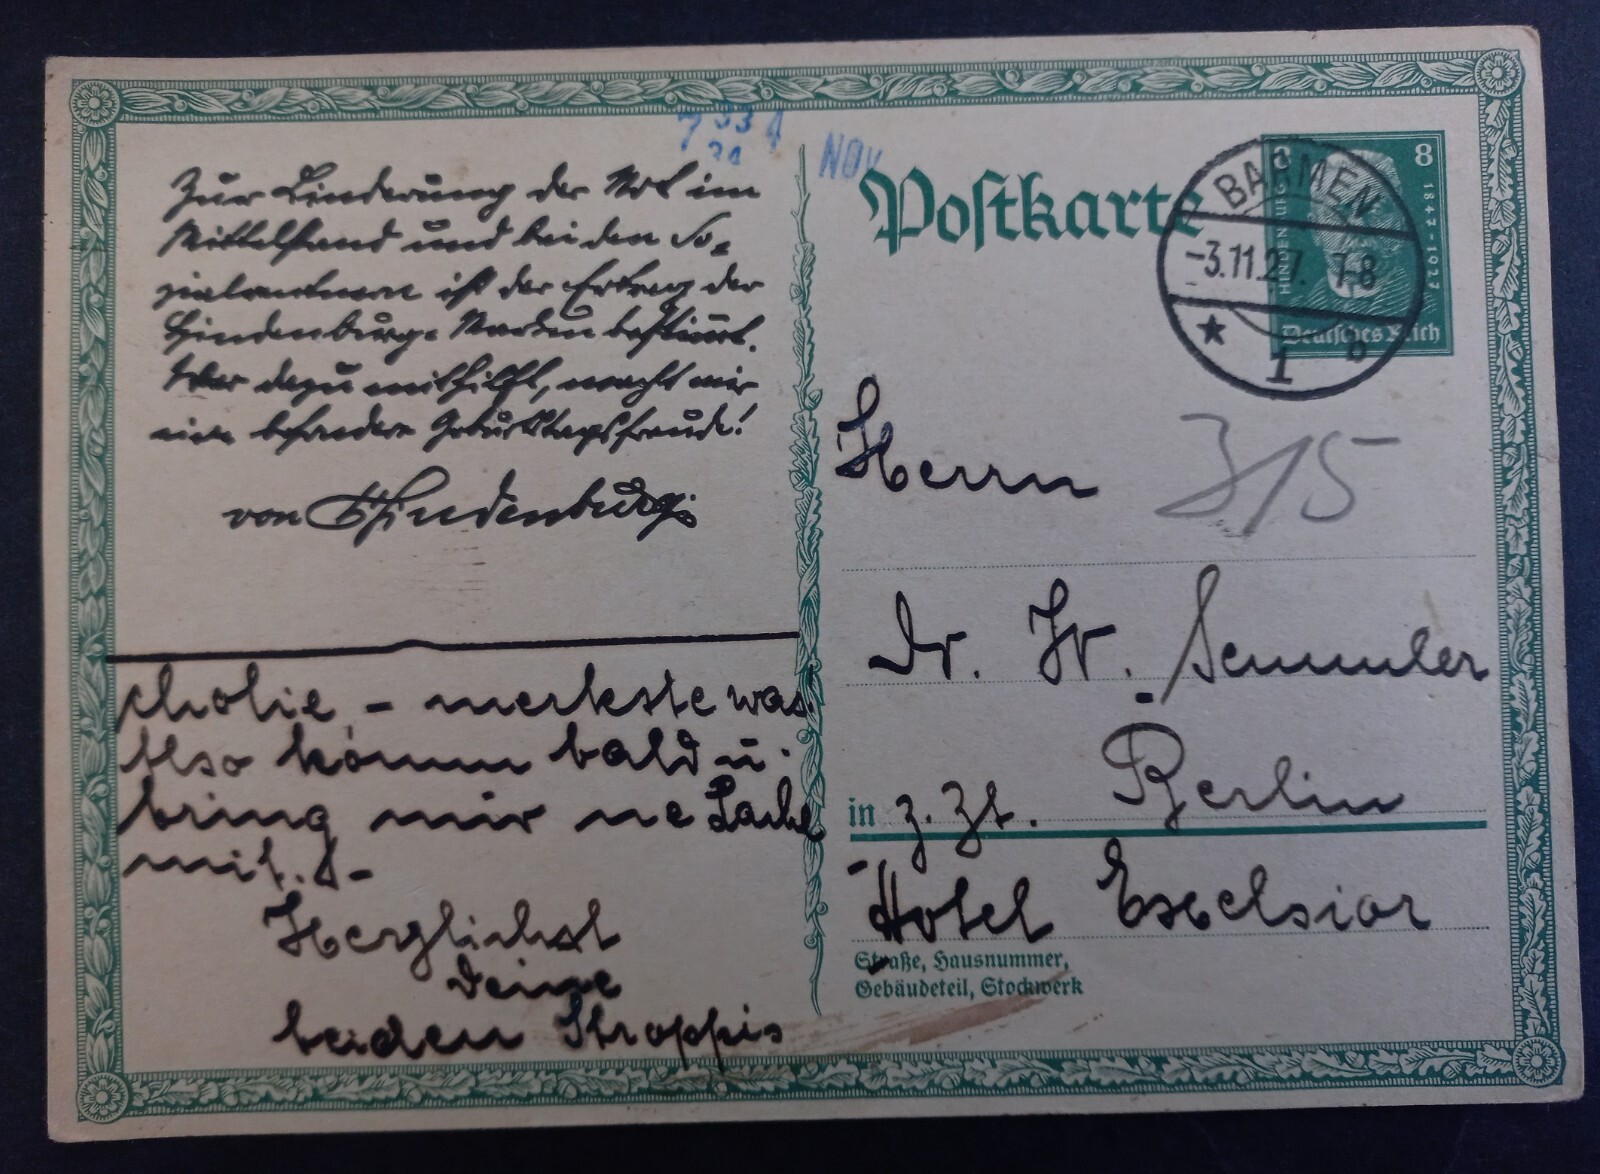 7 33 1
34
NOV
Zur Linderung der Not im
Mittelstand und bei den So-
zialrentnern ist der Ertrag der
Hindenburg-Marken bestimmt.
Wer dazu mithilft, macht mir
eine besondere Geburtstagsfreude!
von Hindenburg
cholie – merkste was
Also komm bald u.
bring mir ne
mit.
Herzlichst
Deine
beiden Stroppis
Postkarte
8 8
HINDENBURG
1847-1927
Deutsches Reich
BARMEN
-3.11.27. 7-8
★ 1 b
Herrn
315
Dr. Fr. Semmler
in z. Zt. Berlin
Hotel Excelsior
Straße, Hausnummer,
Gebäudeteil, Stockwerk